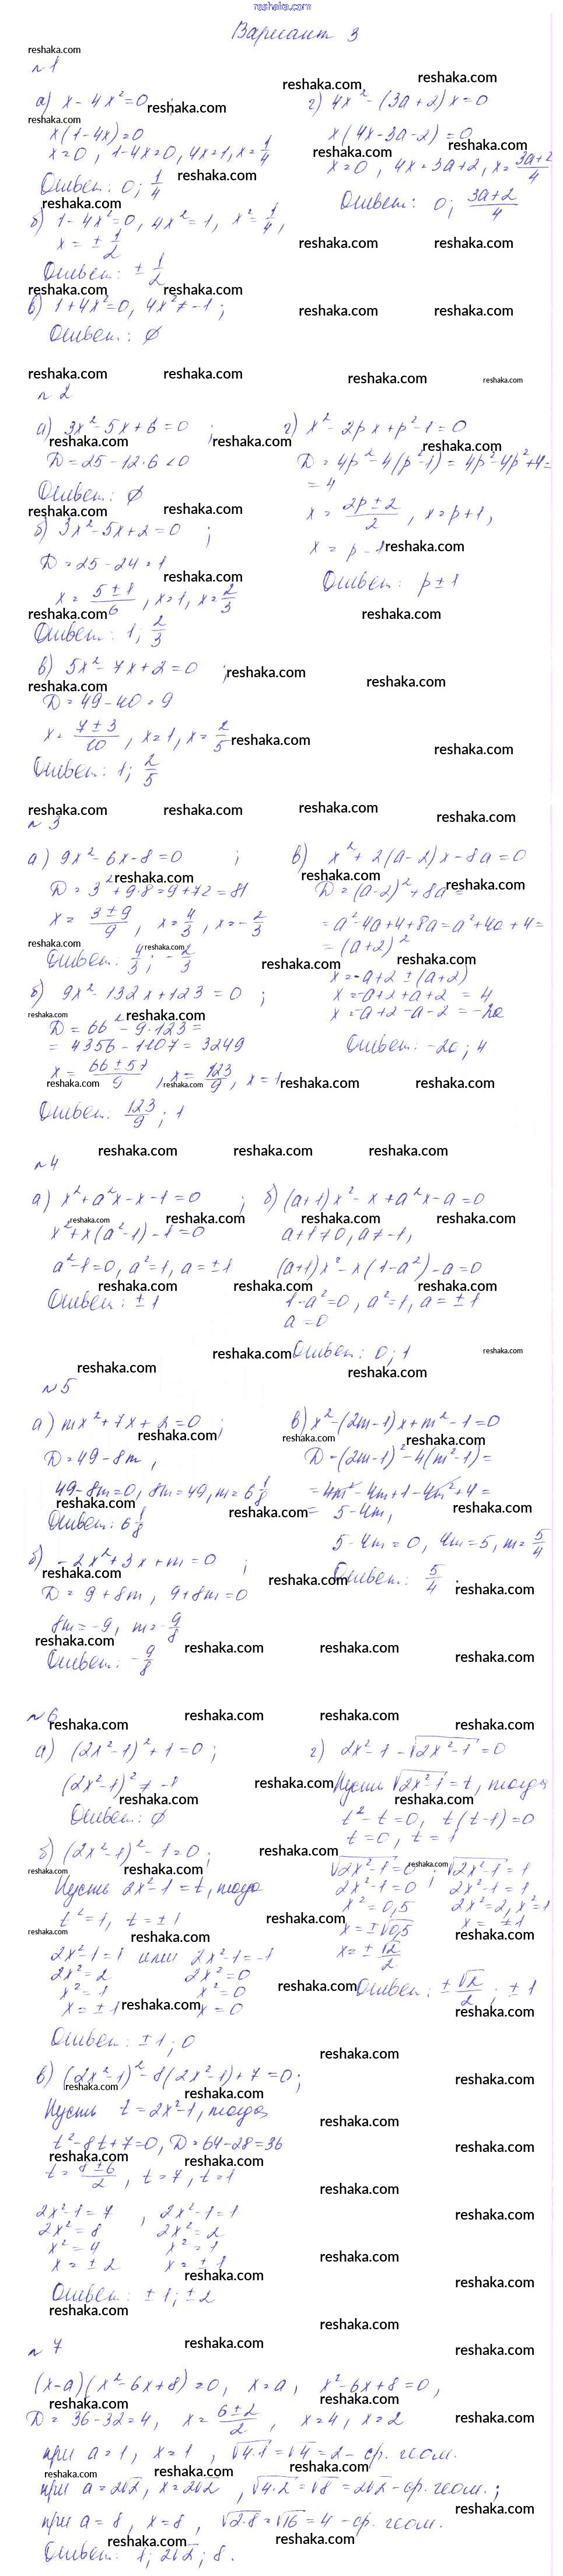 reshaka.com
Вариант 3
№1
а) x - 4x² = 0 ;
x(1-4x) = 0
x = 0, 1-4x = 0, 4x = 1, x = 1/4
Ответ: 0; 1/4
б) 1-4x² = 0, 4x² = 1, x² = 1/4,
x = ± 1/2
Ответ: ± 1/2
в) 1+4x² = 0, 4x² ≠ -1;
Ответ: ∅
г) 4x² - (3a+2)x = 0
x(4x-3a-2) = 0
x = 0, 4x = 3a+2, x = (3a+2)/4
Ответ: 0; (3a+2)/4
№2
а) 3x² - 5x + 6 = 0 ;
D = 25 - 12·6 < 0
Ответ: ∅
б) 3x² - 5x + 2 = 0 ;
D = 25 - 24 = 1
x = (5±1)/6, x = 1, x = 2/3
Ответ: 1; 2/3
в) 5x² - 7x + 2 = 0 ;
D = 49 - 40 = 9
x = (7±3)/10, x = 1, x = 2/5
Ответ: 1; 2/5
г) x² - 2px + p² - 1 = 0
D = 4p² - 4(p²-1) = 4p² - 4p² + 4 =
= 4
x = (2p±2)/2, x = p+1,
x = p - 1
Ответ: p ± 1
№3
а) 9x² - 6x - 8 = 0 ;
D = 3² + 9·8 = 9 + 72 = 81
x = (3±9)/9, x = 4/3, x = -2/3
Ответ: 4/3; -2/3
б) 9x² - 132x + 123 = 0 ;
D = 66² - 9·123 =
= 4356 - 1107 = 3249
x = (66±57)/9, x = 123/9, x = 1
Ответ: 123/9; 1
в) x² + 2(a-2)x - 8a = 0
D = (a-2)² + 8a =
= a² - 4a + 4 + 8a = a² + 4a + 4 =
= (a+2)²
x = -a+2 ± (a+2)
x = -a+2+a+2 = 4
x = -a+2-a-2 = -2a
Ответ: -2a; 4
№4
а) x² + a²x - x - 1 = 0 ;
x² + x(a²-1) - 1 = 0
a² - 1 = 0, a² = 1, a = ±1
Ответ: ±1
б) (a+1)x² - x + a²x - a = 0
a+1 ≠ 0, a ≠ -1,
(a+1)x² - x(1-a²) - a = 0
1-a² = 0, a² = 1, a = ±1
a = 0
Ответ: 0; 1
№5
а) mx² + 7x + 2 = 0 ;
D = 49 - 8m,
49 - 8m = 0, 8m = 49, m = 6 1/8
Ответ: 6 1/8
б) -2x² + 3x + m = 0 ;
D = 9 + 8m, 9 + 8m = 0
8m = -9, m = -9/8
Ответ: -9/8
в) x² - (2m-1)x + m² - 1 = 0
D = (2m-1)² - 4(m²-1) =
= 4m² - 4m + 1 - 4m² + 4 =
= 5 - 4m,
5 - 4m = 0, 4m = 5, m = 5/4
Ответ: 5/4
№6
а) (2x²-1)² + 1 = 0 ;
(2x²-1)² ≠ -1
Ответ: ∅
б) (2x²-1)² - 1 = 0 ;
Пусть 2x²-1 = t, тогда
t² = 1, t = ±1
2x²-1 = 1 или 2x²-1 = -1
2x² = 2 2x² = 0
x² = 1 x² = 0
x = ±1 x = 0
Ответ: ±1; 0
в) (2x²-1)² - 8(2x²-1) + 7 = 0 ;
Пусть t = 2x²-1, тогда
t² - 8t + 7 = 0, D = 64 - 28 = 36
t = (8±6)/2, t = 7, t = 1
2x²-1 = 7 , 2x²-1 = 1
2x² = 8 2x² = 2
x² = 4 x² = 1
x = ±2 x = ±1
Ответ: ±1; ±2
г) 2x² - 1 - √(2x²-1) = 0
Пусть √(2x²-1) = t, тогда
t² - t = 0, t(t-1) = 0
t = 0, t = 1
√(2x²-1) = 0 ; √(2x²-1) = 1
2x²-1 = 0 2x²-1 = 1
x² = 0,5 2x² = 2, x² = 1
x = ±√0,5 x = ±1
x = ± √2/2
Ответ: ± √2/2; ±1
№7
(x-a)(x²-6x+8) = 0, x = a, x²-6x+8 = 0,
D = 36 - 32 = 4, x = (6±2)/2, x = 4, x = 2
при a = 1, x = 1, √(4·1) = √4 = 2 - ср. геом.
при a = 2√2, x = 2√2, √(4·2) = √8 = 2√2 - ср. геом.;
при a = 8, x = 8, √(2·8) = √16 = 4 - ср. геом.
Ответ: 1; 2√2; 8.